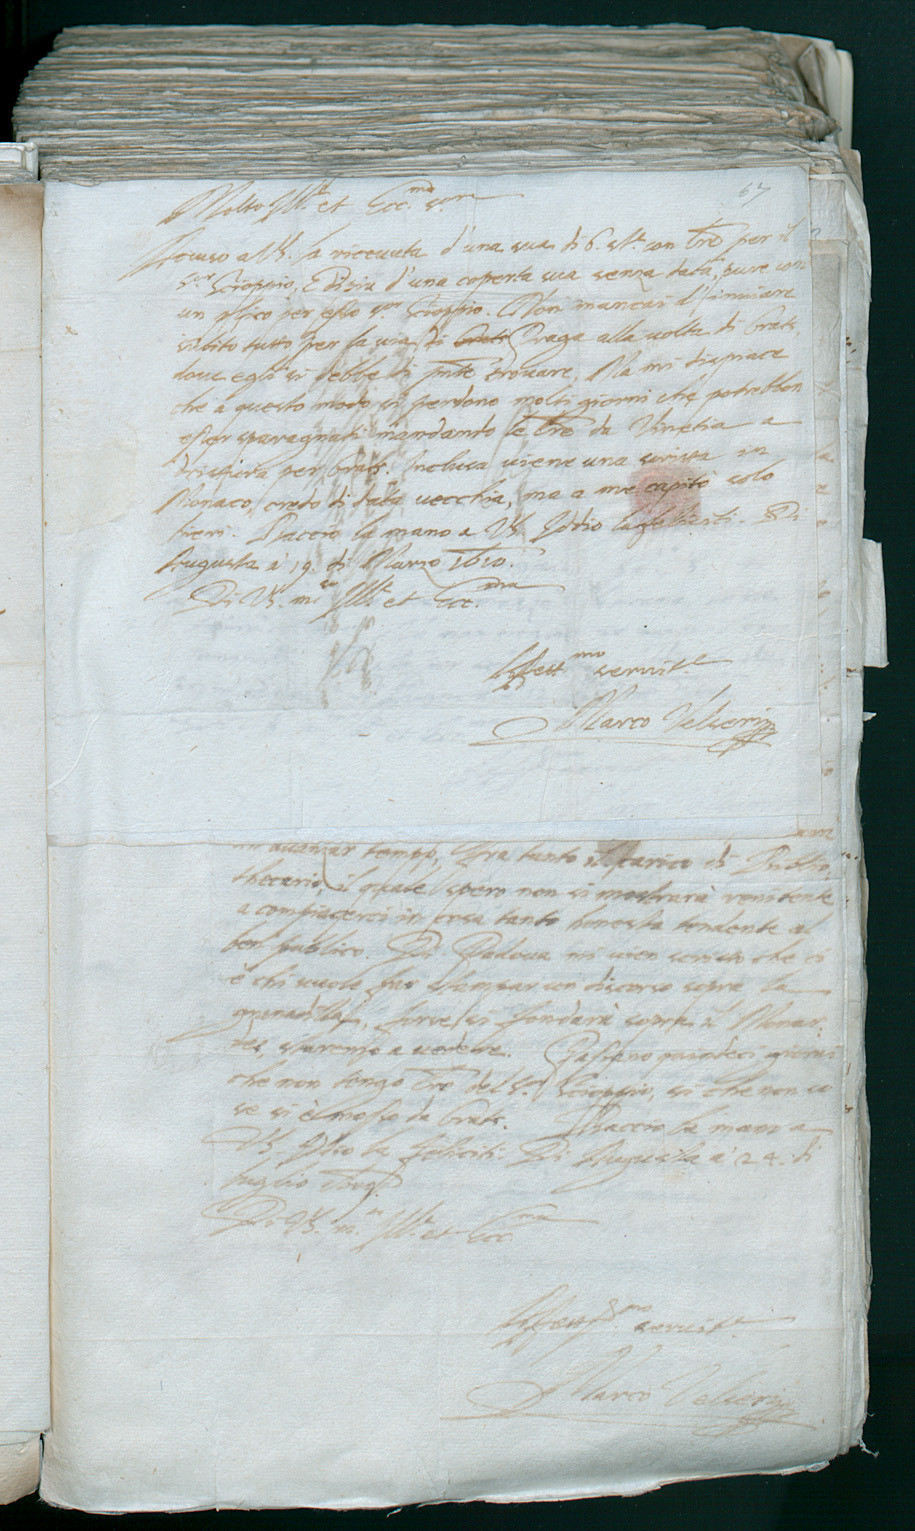 67
Molto Ill.re et Ecc.mo s.or
Accuso a VS. la ricevuta d'una sua di 6. st.e con tre per il
s.or Scioppio, E disia d'una coperta sua senza data, pure con
un plico per esso s.or Scioppio. Non mancai d'inviare
subito tutto per la via di Praga alla volta di Gratz
dove egli si debbe di pnte trovare. Ma mi dispiace
che a questo modo si perdono molti giorni che potrebbon
esser sparagnati mandando le tre da Venetia a
drittura per Gratz. Inclusa viene una scritta in
Monaco, credo di data vecchia, ma a me capitò solo
hieri. Baccio la mano a VS. Iddio la feliciti. Di
Augusta à 19. di Marzo 1610.
Di VS. m.to Ill.re et Ecc.ma
Affett.mo servit.e
Marco Velseri
avanzar tempo, fra tanto il carico di Biblio
thecario, il quale spero non si mostrarà renitente
a compiacerci in cosa tanto honesta tendente al
ben publico. Di Padova mi vien scritto che ci
è chi vuole far stampar un discorso sopra la
granadilla, forse si fondarà sopra il Monar
des, staremo a vedere. Passano quindeci giorni
che non tengo tre del S.or Scioppio, si che non so
se si è mosso da Gratz. Baccio la mano a
VS. Iddio la feliciti. Di Augusta a' 24. di
luglio 1609
Di VS. m.to Ill.re et Ecc.ma
Affett.mo servit.e
Marco Velseri